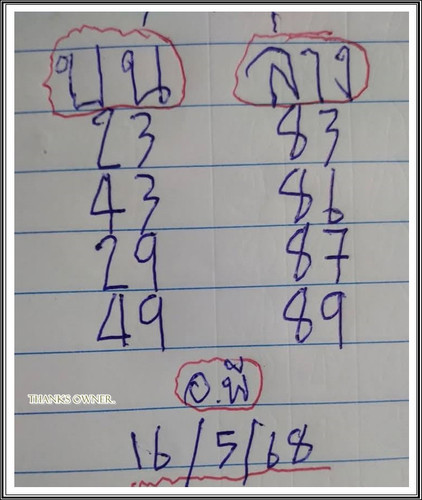 บน ล่าง
23 83
43 86
29 87
49 89
อ.พี
THANKS OWNER..
16/5/68